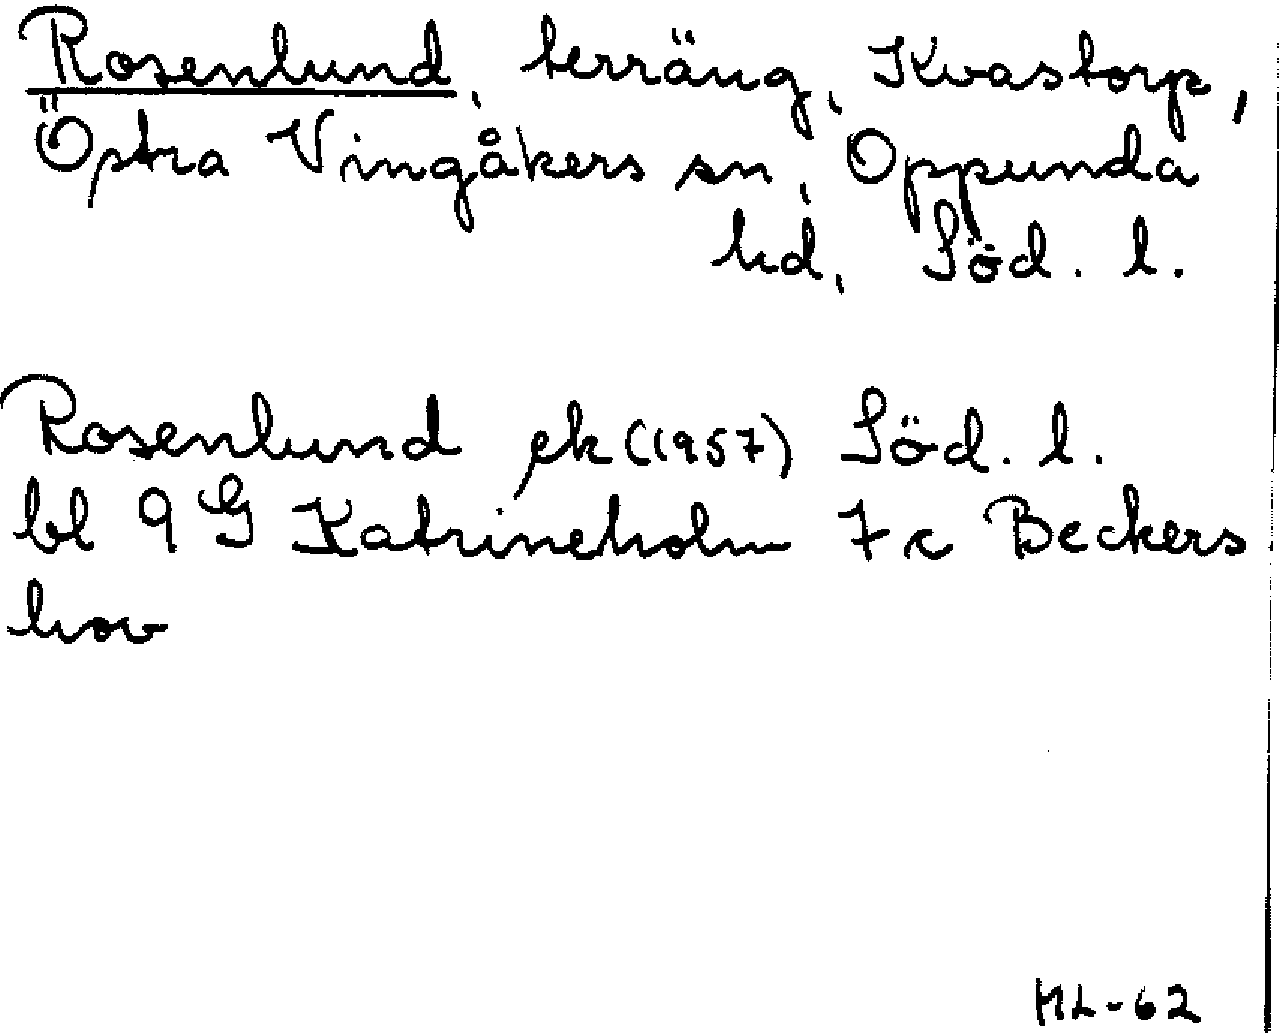 Rosenlund, terräng, Kvastorp,
Östra Vingåkers sn, Oppunda
hd, Söd. l.
Rosenlund ek (1957) Söd. l.
bl 9 G Katrineholm 7 c Beckers
hov
ML-62